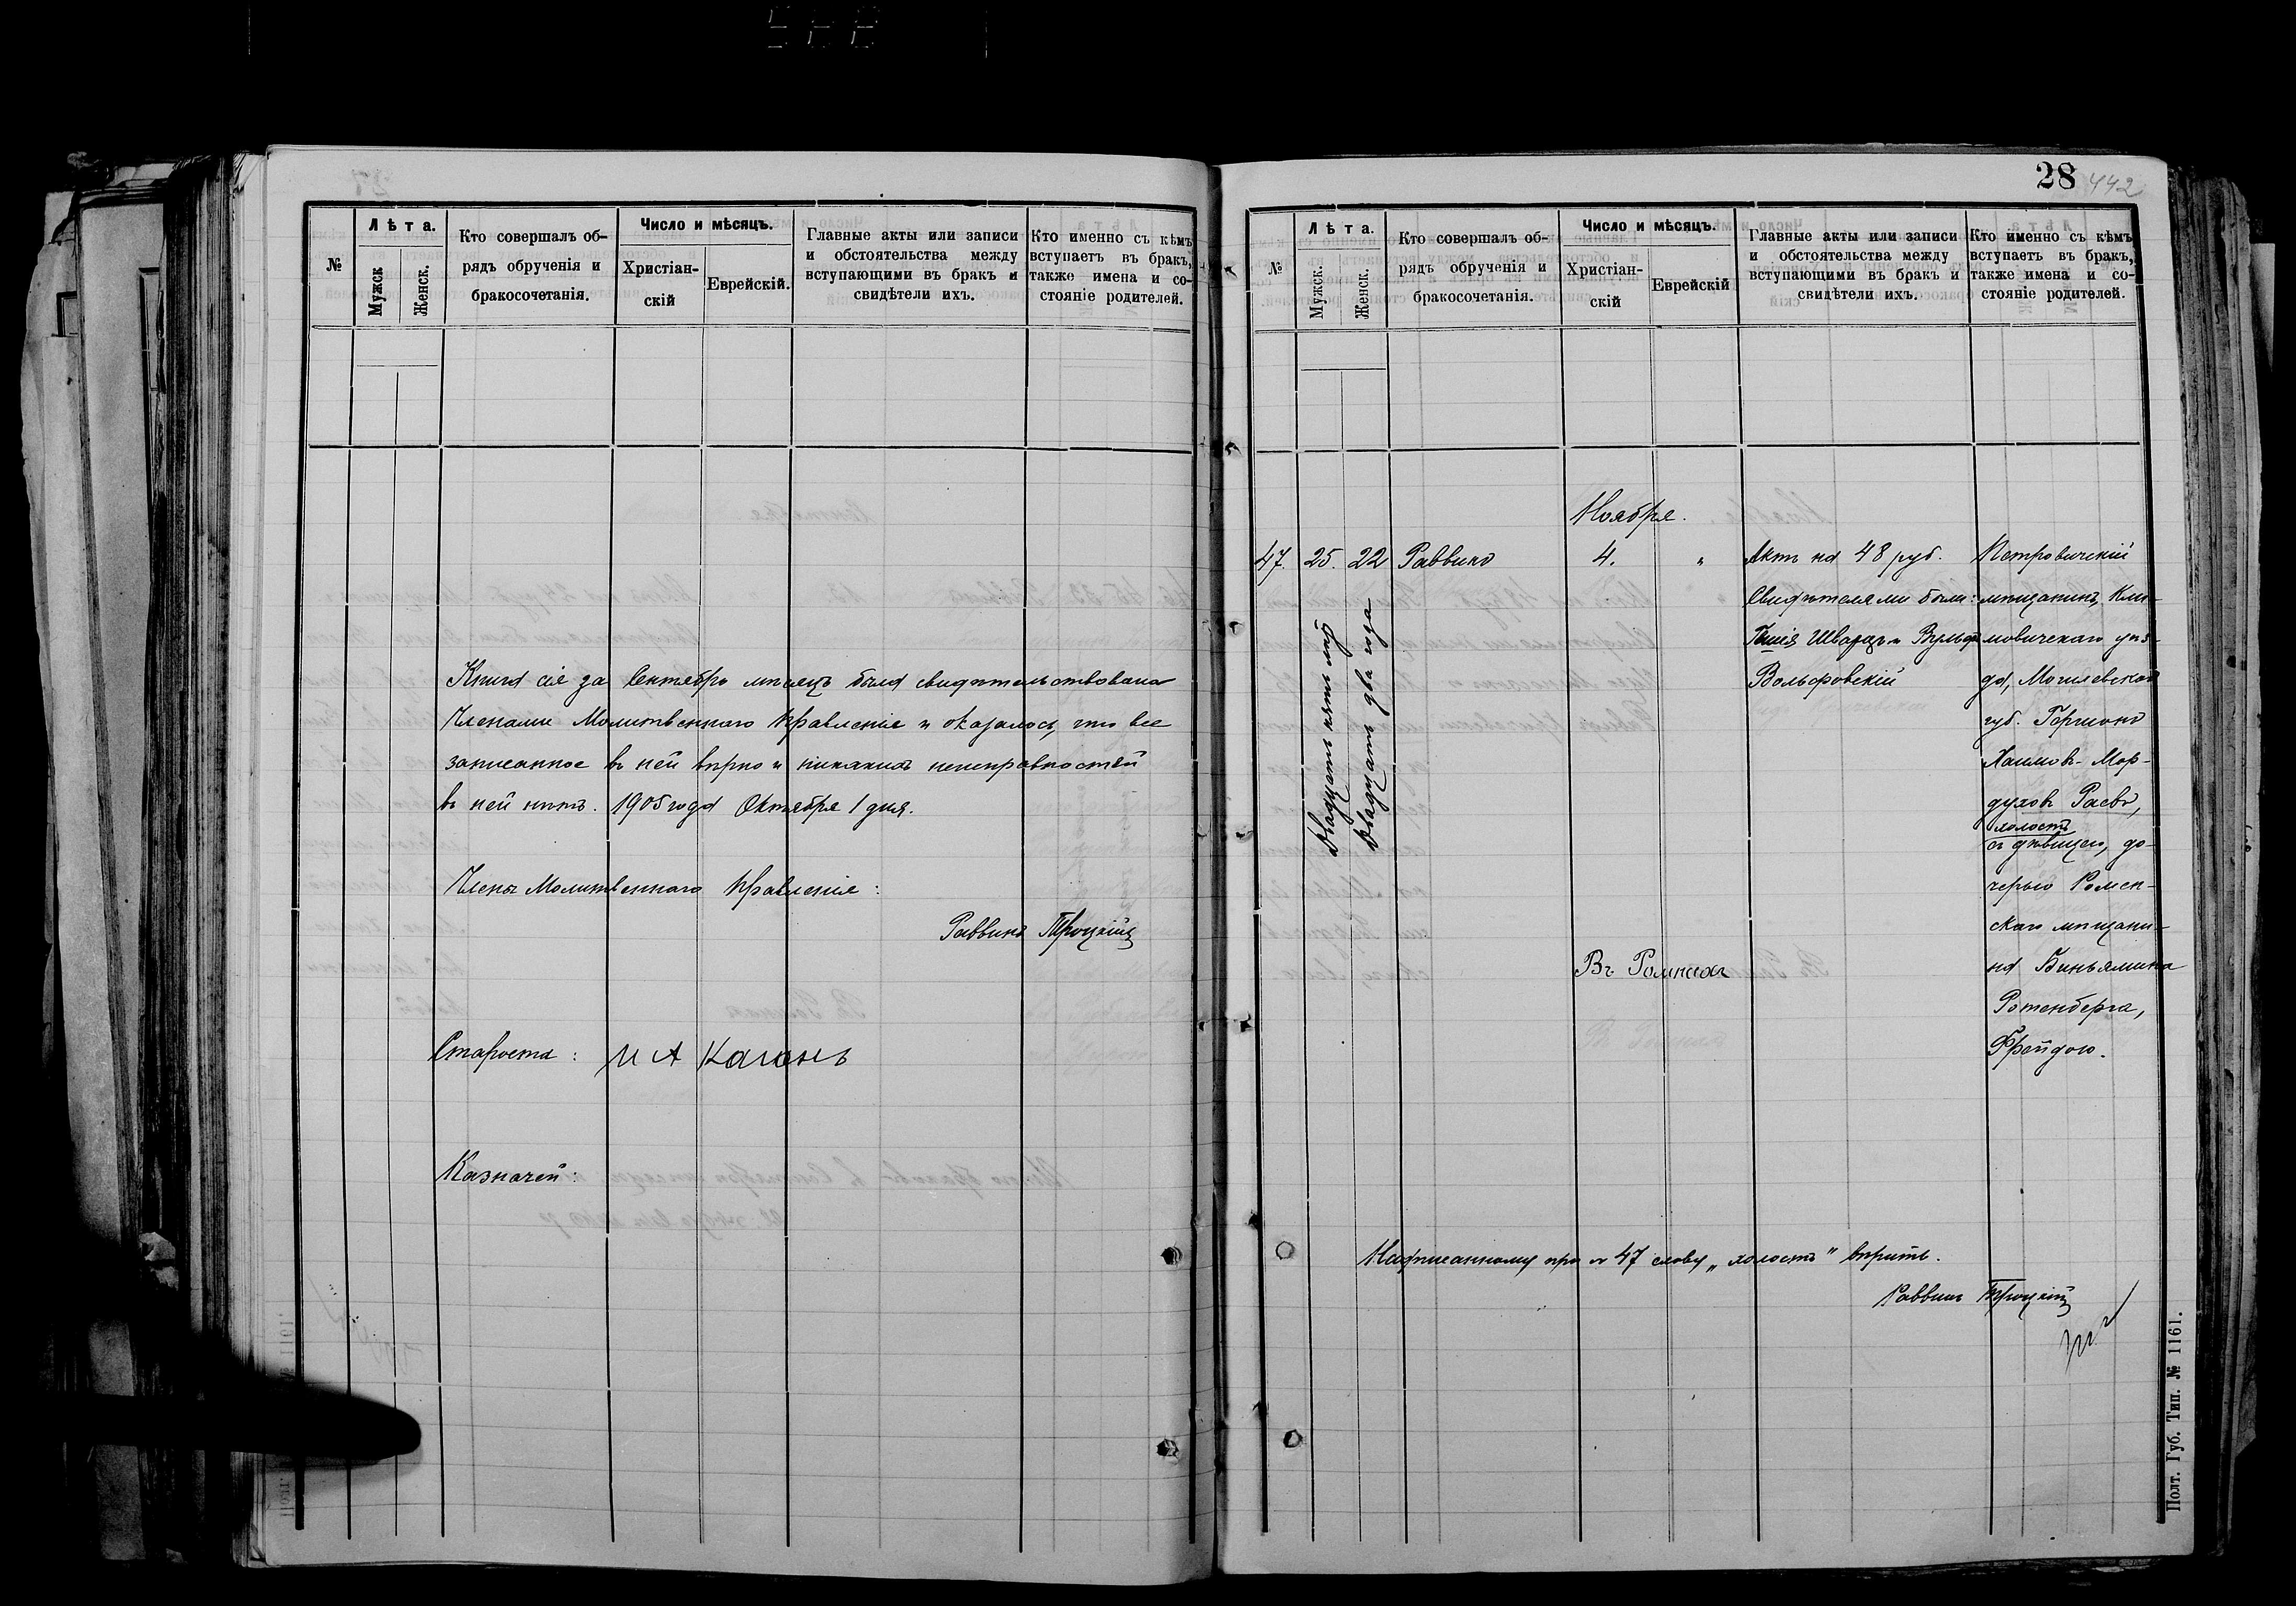 №
Лѣта.
Мужск
Женск.
Кто совершалъ об-
рядъ обрученія и
бракосочетанія.
Число и мѣсяцъ.
Христіан-
скій
Еврейскій.
Главные акты или записи
и обстоятельства между
вступающими въ бракъ и
свидѣтели ихъ.
Кто именно съ кѣмъ
вступаетъ въ бракъ,
также имена и со-
стояніе родителей.
Книга сія за Сентябрь мѣсяцъ была свидѣтельствована
Членами Молитвеннаго Правленія и оказалось, что все
записанное въ ней вѣрно и никакихъ неисправностей
въ ней нѣтъ. 1905 года Октября 1 дня.
Члены Молитвеннаго Правленія:
Раввинъ Троцкій
Староста: И А Каганъ
Казначей:
28
442
№
Лѣта.
Мужск.
Женск.
Кто совершалъ об-
рядъ обрученія и
бракосочетанія.
Число и мѣсяцъ.
Христіан-
скій
Еврейскій
Главные акты или записи
и обстоятельства между
вступающими въ бракъ и
свидѣтели ихъ.
Кто именно съ кѣмъ
вступаетъ въ бракъ,
также имена и со-
стояніе родителей.
Ноября.
47. 25. 22 Раввинъ 4. "
Двадцать пять лѣтъ
Двадцать два года
Актъ на 48 руб.
Свидѣтелями были:
Шварцъ и Вульфъ
Вольфовскій
Въ Ромнахъ
Петровичскій
мѣщанинъ, Кли-
мовичскаго уѣз-
да, Могилевской
губ. Гершонъ
Хаимовъ-Мор-
духовъ Раевъ,
холостъ
съ дѣвицею, до-
черью Ромен-
скаго мѣщани-
на Биньямина
Ротенберга,
Фрейдою.
Надписанному при № 47 слову „холостъ" вѣрить.
Раввинъ Троцкій
Полт. Губ. Тип. № 1161.